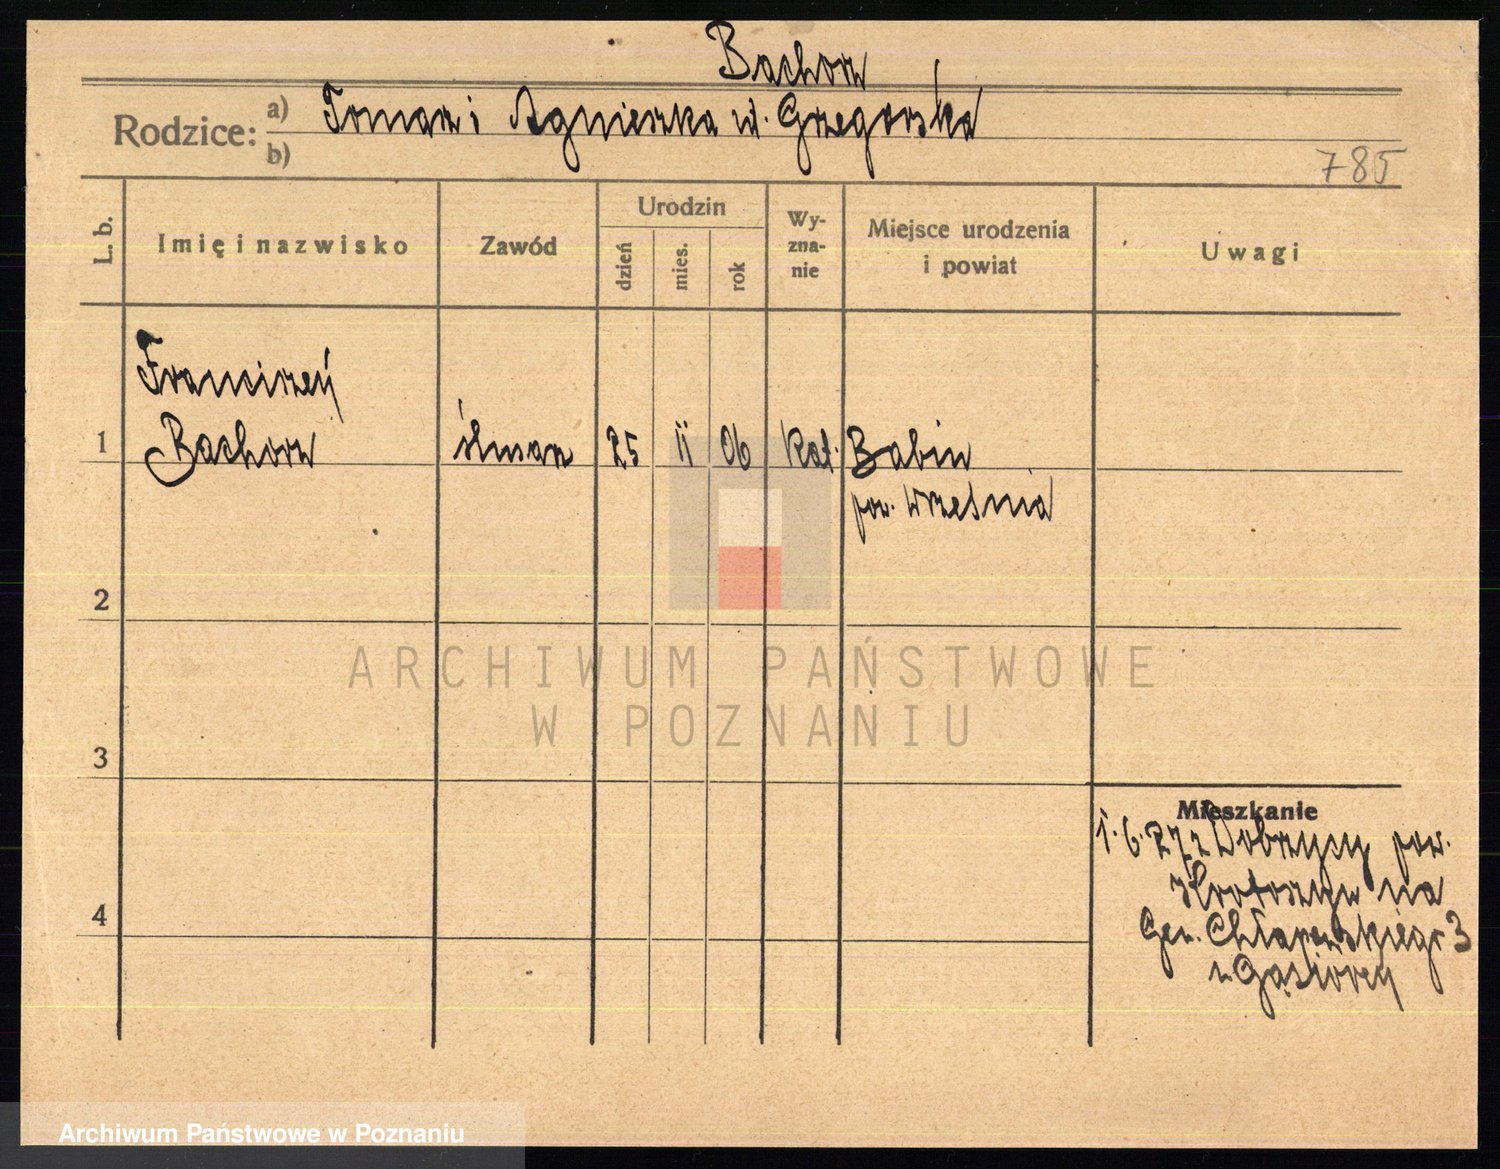 Bachorz
Rodzice: a) Tomasz i Agnieszka ur. Grzegorska
b)
785
L. b.
Imię i nazwisko
Zawód
Urodzin
dzień
mies.
rok
Wy-
zna-
nie
Miejsce urodzenia
i powiat
Uwagi
Franciszek
1 Bachorz ślusarz 25 II 06 kat. Babin
pow. Września
2
3
4
ARCHIWUM PAŃSTWOWE
W POZNANIU
Mieszkanie
1.6.27 z Dobrzycy pow.
Krotoszyn na
Gen. Chłapowskiego 3
u Gąsiorek
Archiwum Państwowe w Poznaniu